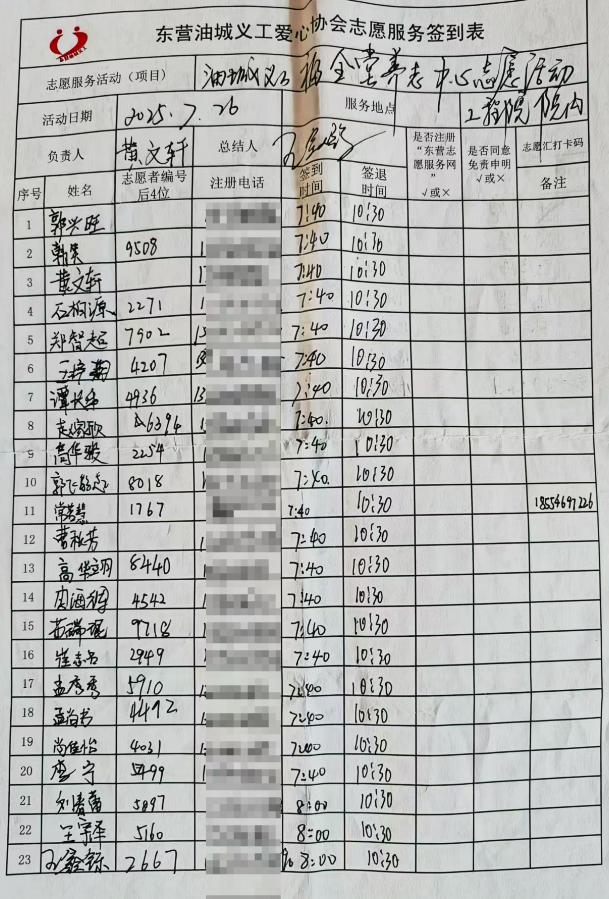 东营油城义工爱心协会志愿服务签到表
志愿服务活动（项目） 油城义工 福金堂养老中心志愿活动
活动日期 2025.7.26 服务地点 工程院 院内
负责人 黄文轩 总结人 是否注册“东营志愿服务网”√或× 是否同意免责申明√或× 志愿汇打卡码
序号 姓名 志愿者编号后4位 注册电话 签到时间 签退时间 备注
1 郭兴旺 7:40 10:30
2 9508 1 7:40 10:30
3 黄文轩 1 7:40 10:30
4 石柏源 2271 1 7:40 10:30
5 郑智超 7902 7:40 10:30
6 4207 7:40 10:30
7 4936 13 7:40 10:30
8 6394 1 7:40 10:30
9 高华骏 2254 1 7:40 10:30
10 8018 7:40 10:30
11 常若慧 1767 7:40 10:30 18554697226
12 曹秋芳 1 7:40 10:30
13 8440 1 7:40 10:30
14 4542 1 7:40 10:30
15 苗瑞琨 9718 1 7:40 10:30
16 2949 1 7:40 10:30
17 孟彦秀 5910 7:40 10:30
18 孟尚书 4492 1 7:40 10:30
19 尚佳怡 4031 7:40 10:30
20 李宁 1 7:40 10:30
21 刘贵蕾 5897 8:00 10:30
22 王宇泽 5160 8:00 10:30
23 2667 8:00 10:30